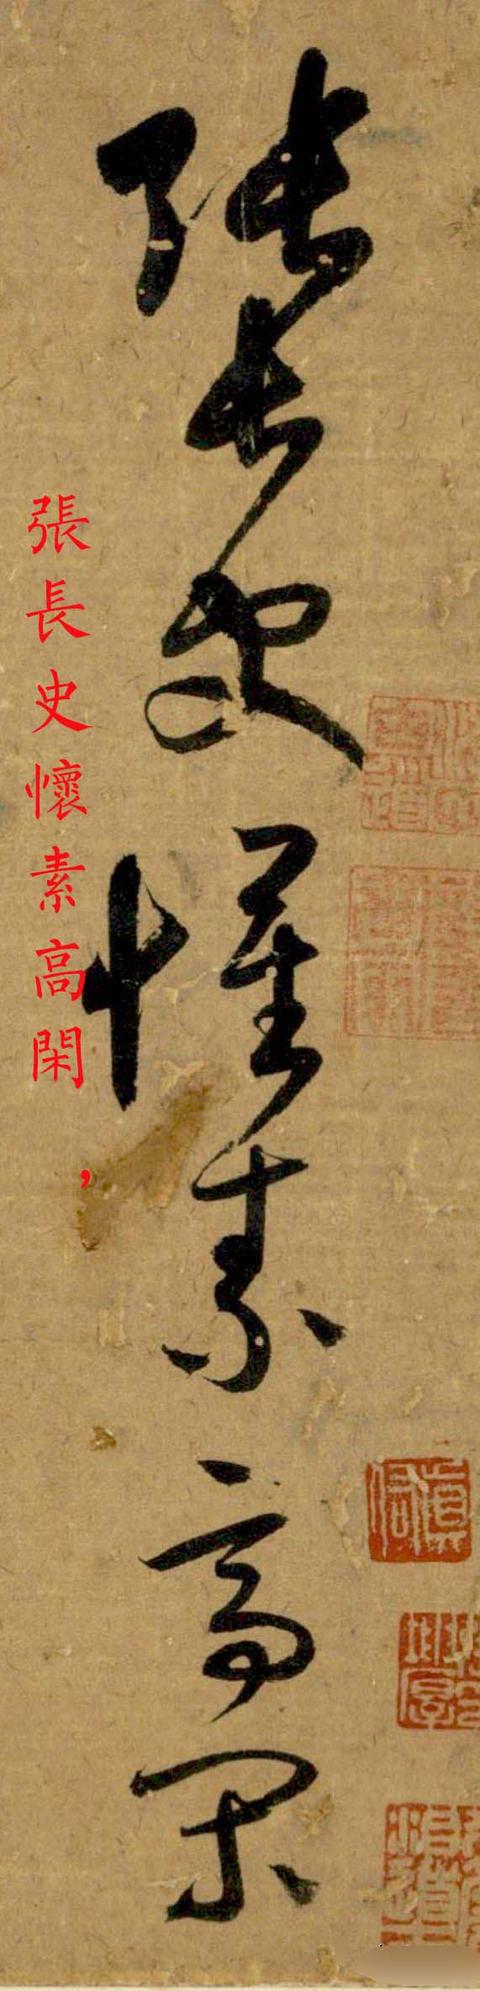 張長史懷素高閑
張長史懷素高閑，